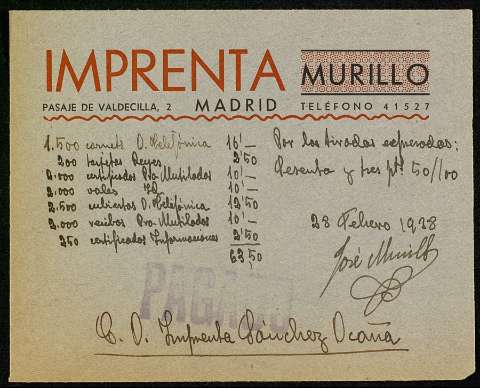 IMPRENTA MURILLO
PASAJE DE VALDECILLA, 2 MADRID TELÉFONO 41527
1.500 carnets O. Telefónica 16'—
200 tarjetas Reyes 2'50
2.000 certificados Pro. Mutilados 10'—
2.000 vales 10'—
2.500 cubiertas O. Telefónica 12'50
2.000 recibos Pro. Mutilados 10'—
250 certificados Informaciones 2'50
63'50
Por las tiradas expresadas:
sesenta y tres pts 50/100
28 Febrero 1938
José Murillo
PAGADO
C. O. Imprenta Sánchez Ocaña